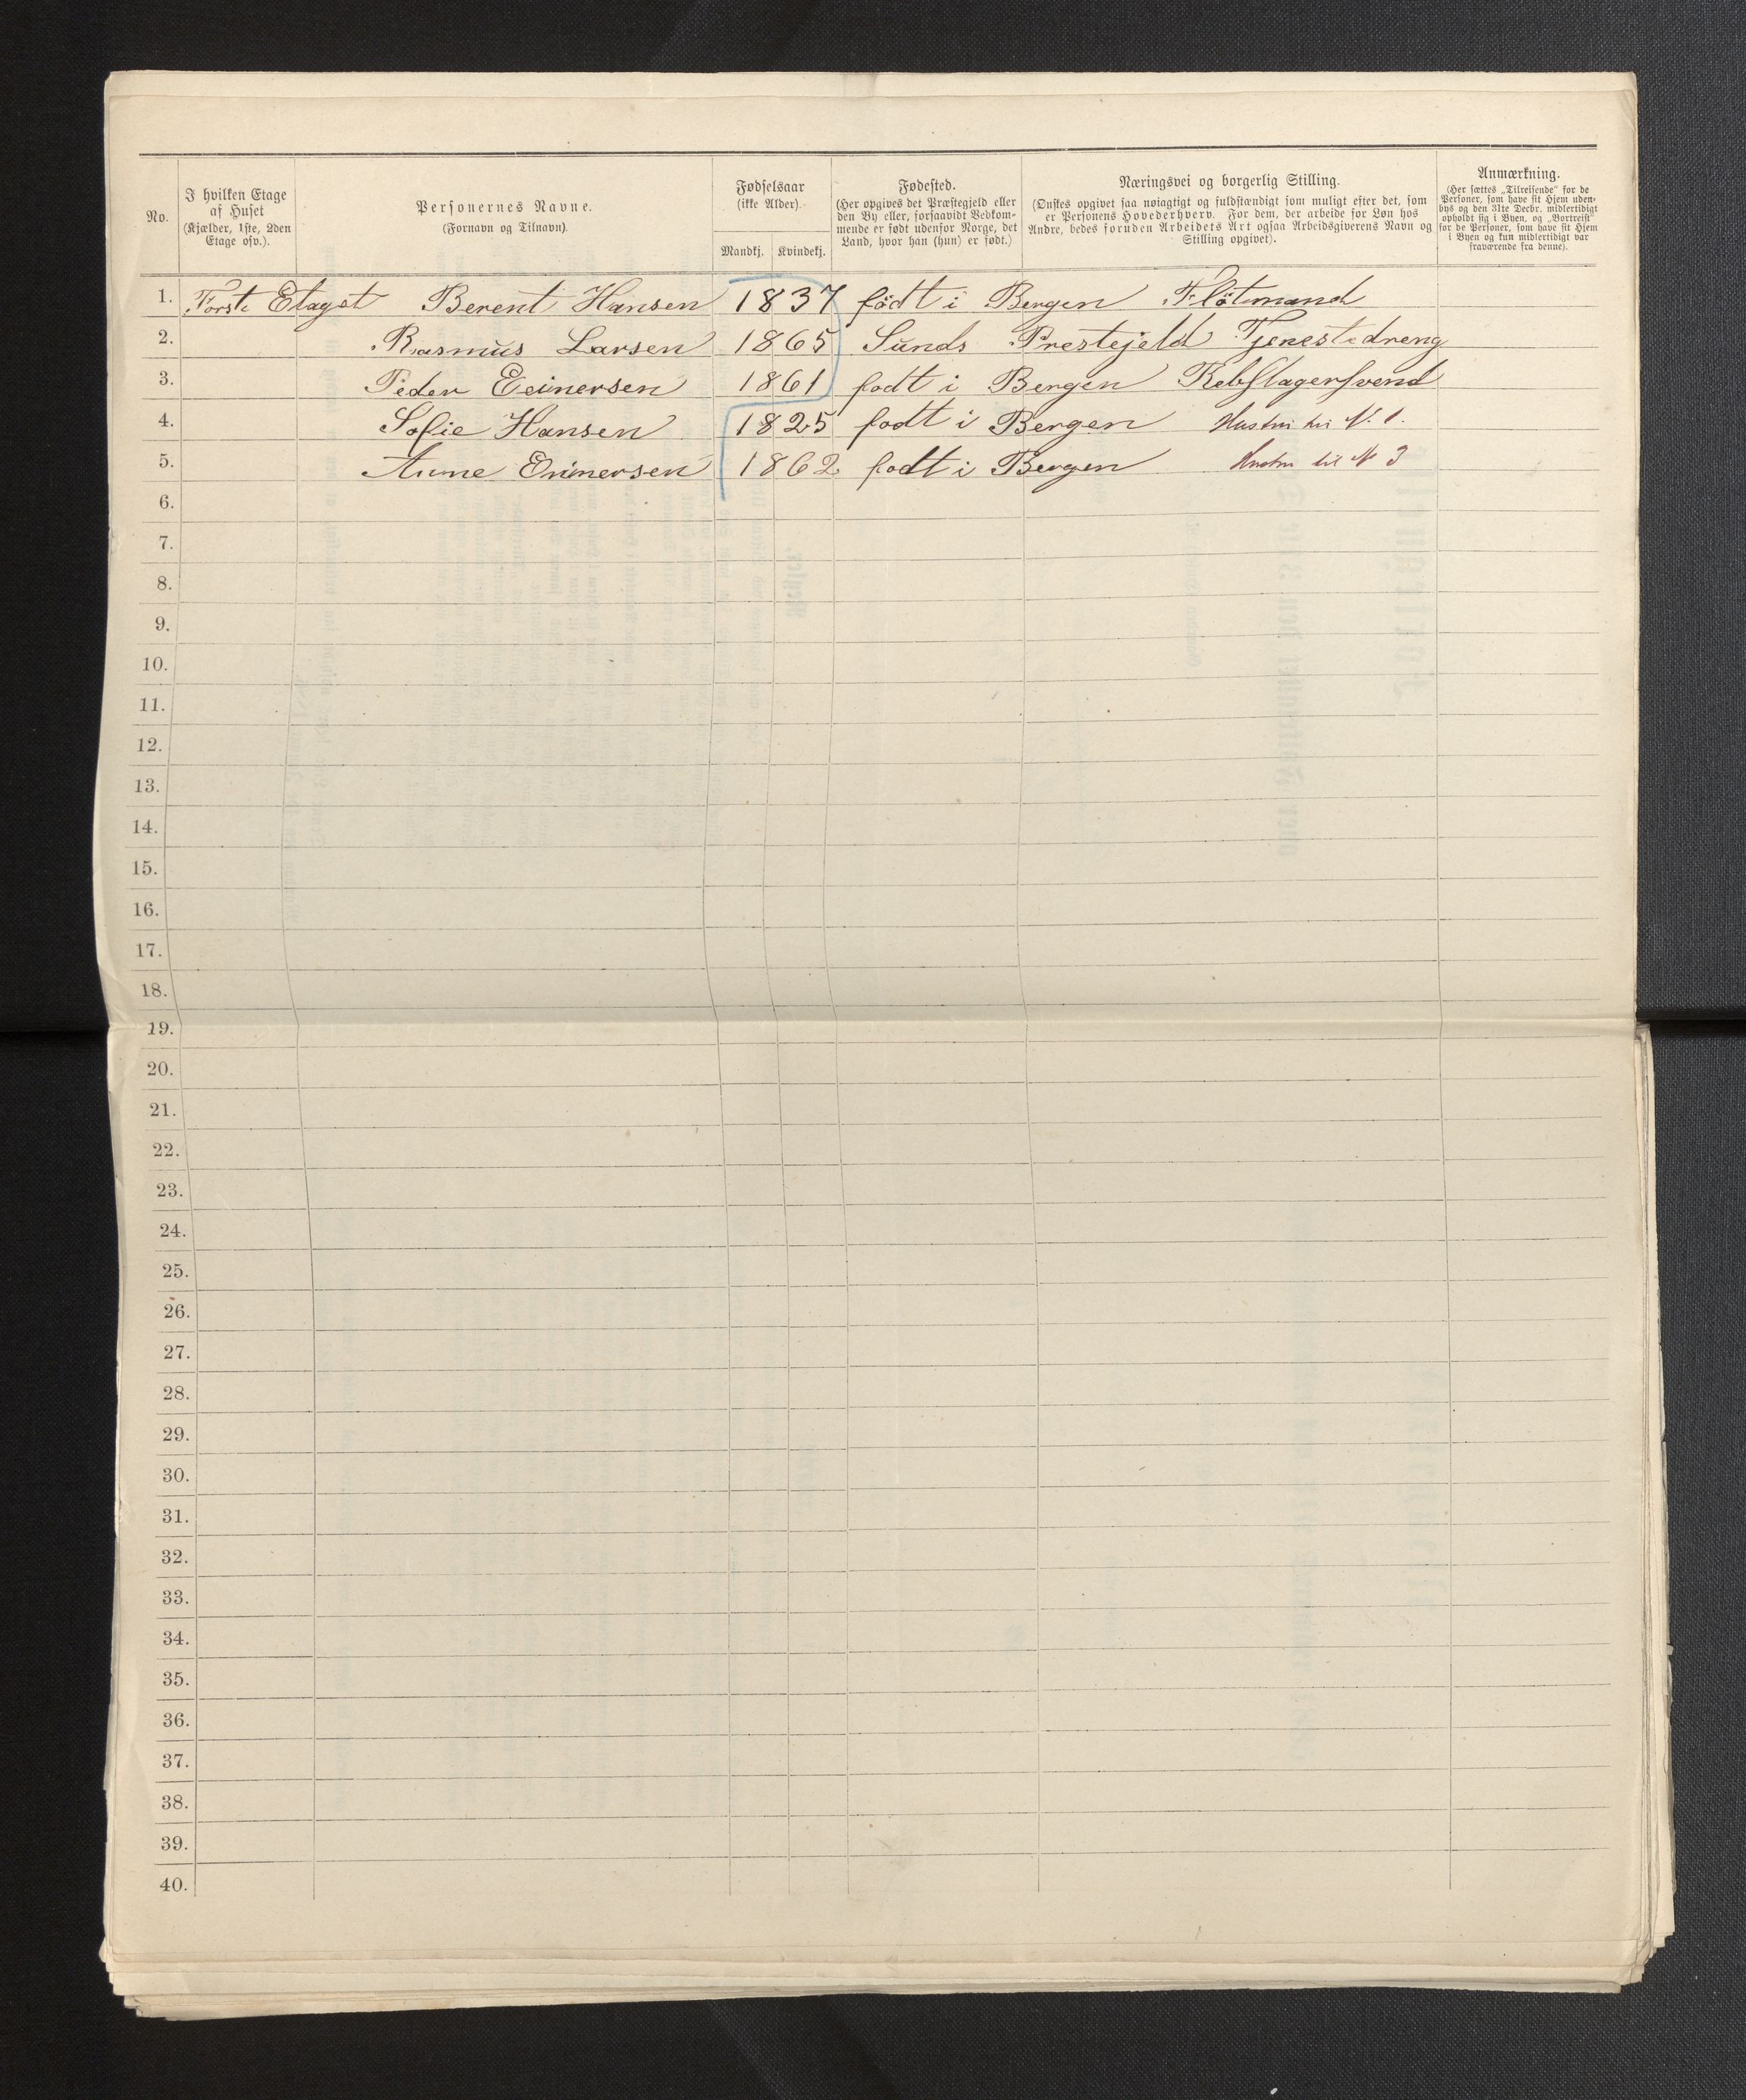 No.
I hvilken Etage
af Huset
(Kjælder, 1ste, 2den
Etage osv.).
Personernes Navne.
(Fornavn og Tilnavn).
Fødselsaar
(ikke Alder).
Mandkj. Kvindekj.
Fødested.
(Her opgives det Præstegjeld eller
den By eller, forsaavidt Vedkom-
mende er født udenfor Norge, det
Land, hvor han (hun) er født.)
Næringsvei og borgerlig Stilling.
(Ønskes opgivet saa nøiagtigt og fuldstændigt som muligt efter det, som
er Personens Hovederhverv. For dem, der arbeide for Løn hos
Andre, bedes foruden Arbeidets Art ogsaa Arbeidsgiverens Navn og
Stilling opgivet).
Anmærkning.
(Her sættes „Tilreisende" for de
Personer, som have sit Hjem uden-
bys og den 31te Decbr. midlertidigt
opholdt sig i Byen, og „Bortreist"
for de Personer, som have sit Hjem
i Byen og kun midlertidigt var
fraværende fra denne).
1. Forste Etagst Berent Hansen 1837 födt i Bergen Flötmand
2. Rasmus Larsen 1865 Sunds Prestejeld Tjenestedreng
3. Peder 1861 fodt i Bergen Rebslagersvend
4. Sofie Hansen 1825 fodt i Bergen Hustru til N. 1.
5. Anne 1862 fodt i Bergen Hustru til N 3
6.
7.
8.
9.
10.
11.
12.
13.
14.
15.
16.
17.
18.
19.
20.
21.
22.
23.
24.
25.
26.
27.
28.
29.
30.
31.
32.
33.
34.
35.
36.
37.
38.
39.
40.